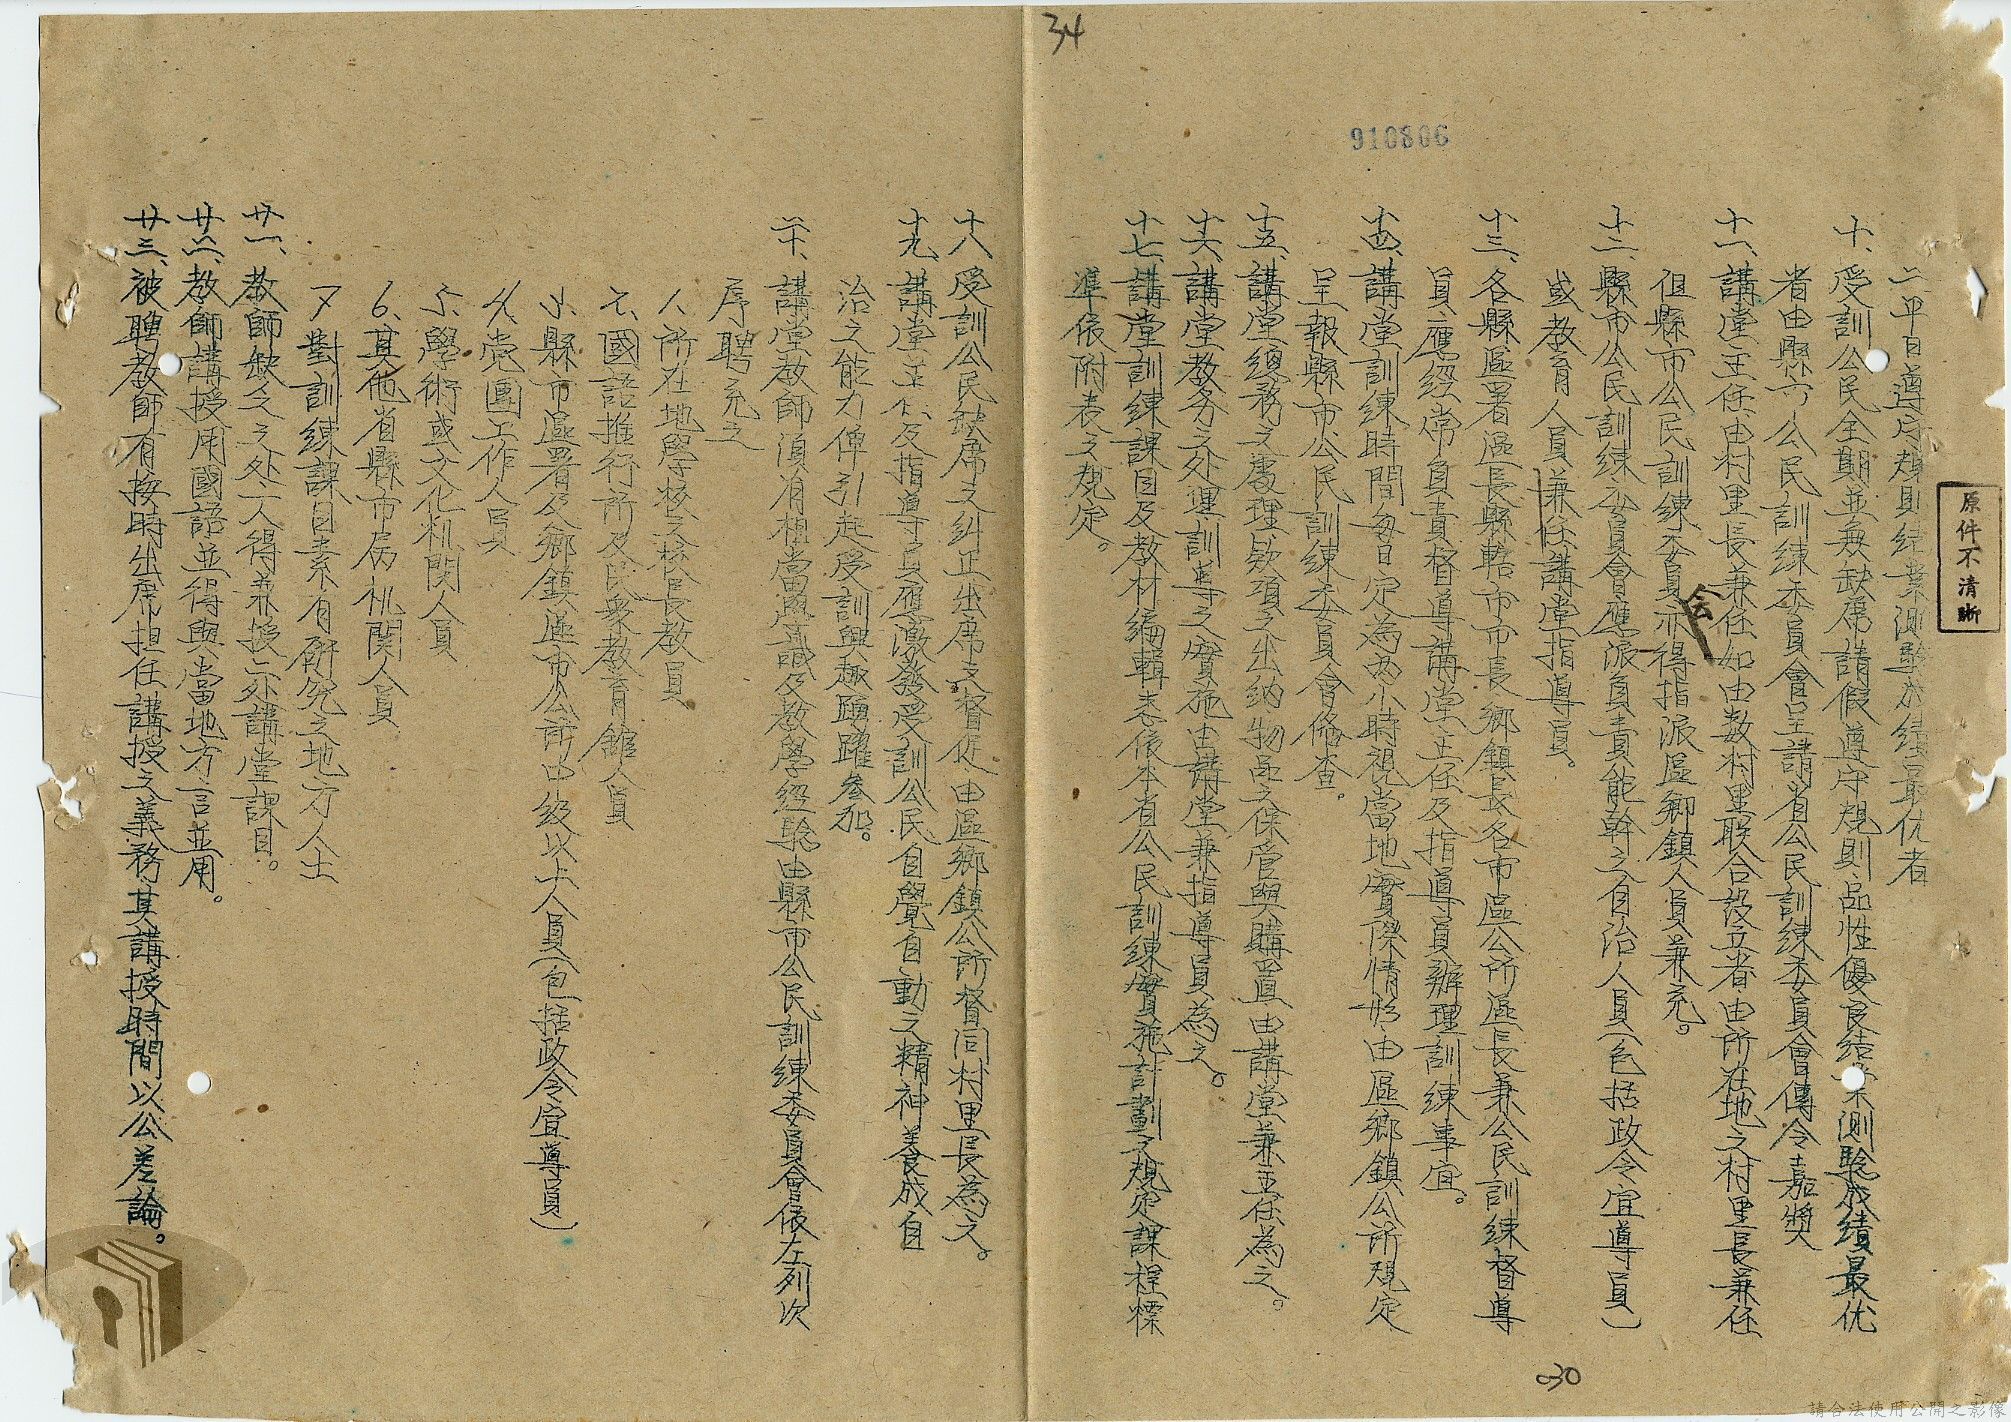 34
910806
原件不清晰
二平日遵守規則結業測驗成績最优者
十、受訓公民全期並無缺席請假遵守規則品性優良結業測驗成績最优
者由縣市公民訓練委員會呈請省公民訓練委員會傳令嘉獎
十一、講堂主任由村里長兼任如由数村里联合設立者由所在地之村里長兼任
但縣市公民訓練委員会亦得指派區鄉鎮人員兼充。
十二、縣市公民訓練委員會應派負責能幹之自治人員(包括政令宣導員)
或教育人員兼任講堂指導員。
十三、各縣區署區長縣轄市市長鄉鎮長各市區公所區長兼公民訓練督導
員應經常負責督導講堂主任及指導員辦理訓練事宜。
十四、講堂訓練時間每日定為两小時視當地實際情形由區鄉鎮公所規定
呈報縣市公民訓練委員會俻查。
十五、講堂總務之處理欵項之出納物品之保管與購置由講堂兼主任為之。
十六、講堂教务之处理訓導之實施由講堂兼指導員為之。
十七、講堂訓練課目及教材編輯悉依本省公民訓練實施計劃之規定課程標
準依附表之規定。
十八、受訓公民缺席之糾正出席之督促由區鄉鎮公所督同村里長為之。
十九、講堂主任及指導員應激發受訓公民自覺自動之精神養成自
治之能力俾引起受訓興趣踴躍參加。
二十、講堂教師須有相當學識及教學經驗由縣市公民訓練委員會依左列次
序聘充之
1、所在地學校之校長教員
2、國語推行所及民衆教育館人員
3、縣市區署及鄉鎮區市公所中級以上人員(包括政令宣導員)
4、党團工作人員
5、學術或文化机関人員
6、其他省縣市府机関人員
7、對訓練課目素有研究之地方人士
廿一、教師缺乏之处一人得兼授二处講堂課目。
廿二、教師講授用國語並得與當地方言並用。
廿三、被聘教師有按時出席担任講授之義務其講授時間以公差論。
030
請合法使用公開之影像